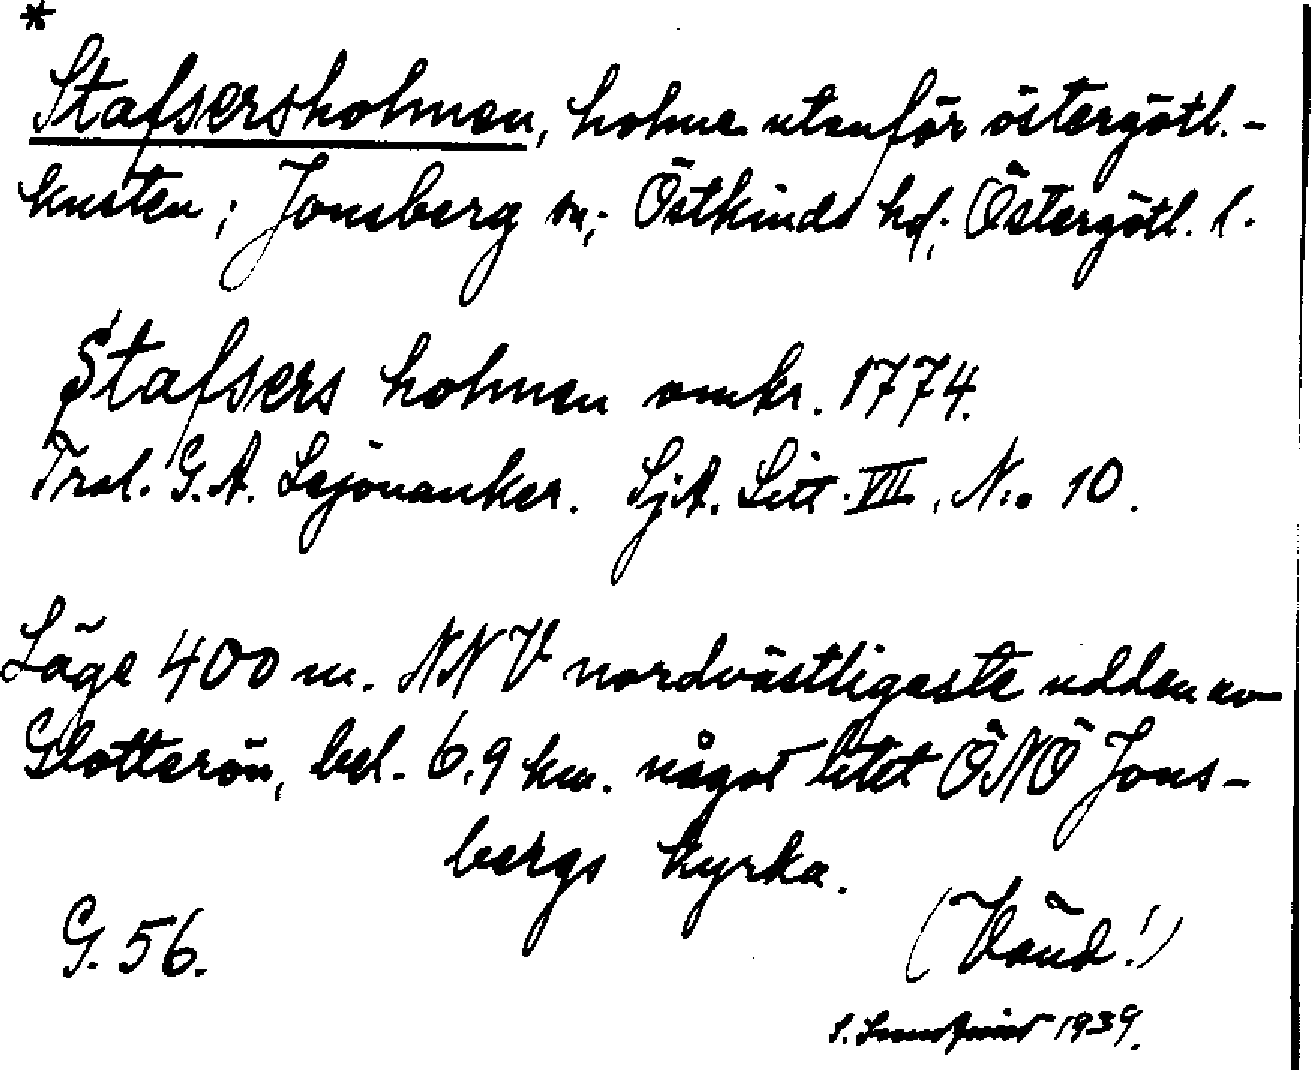 *
Stafsersholmen, holme utanför östergötl.-
kusten; Jonsberg sn; Östkinds hd; Östergötl. l.
Stafsers holmen omkr. 1774.
Trol. G. A. Lejonanker. SjA. Litt. VII, N:o 10.
Läge 400 m. NNV nordvästligaste udden av
Slottsrön, bel. 6,9 km. något litet ÖNÖ Jons-
bergs kyrka.
G. 56. (Vänd!)
S. Lundqvist 1939.